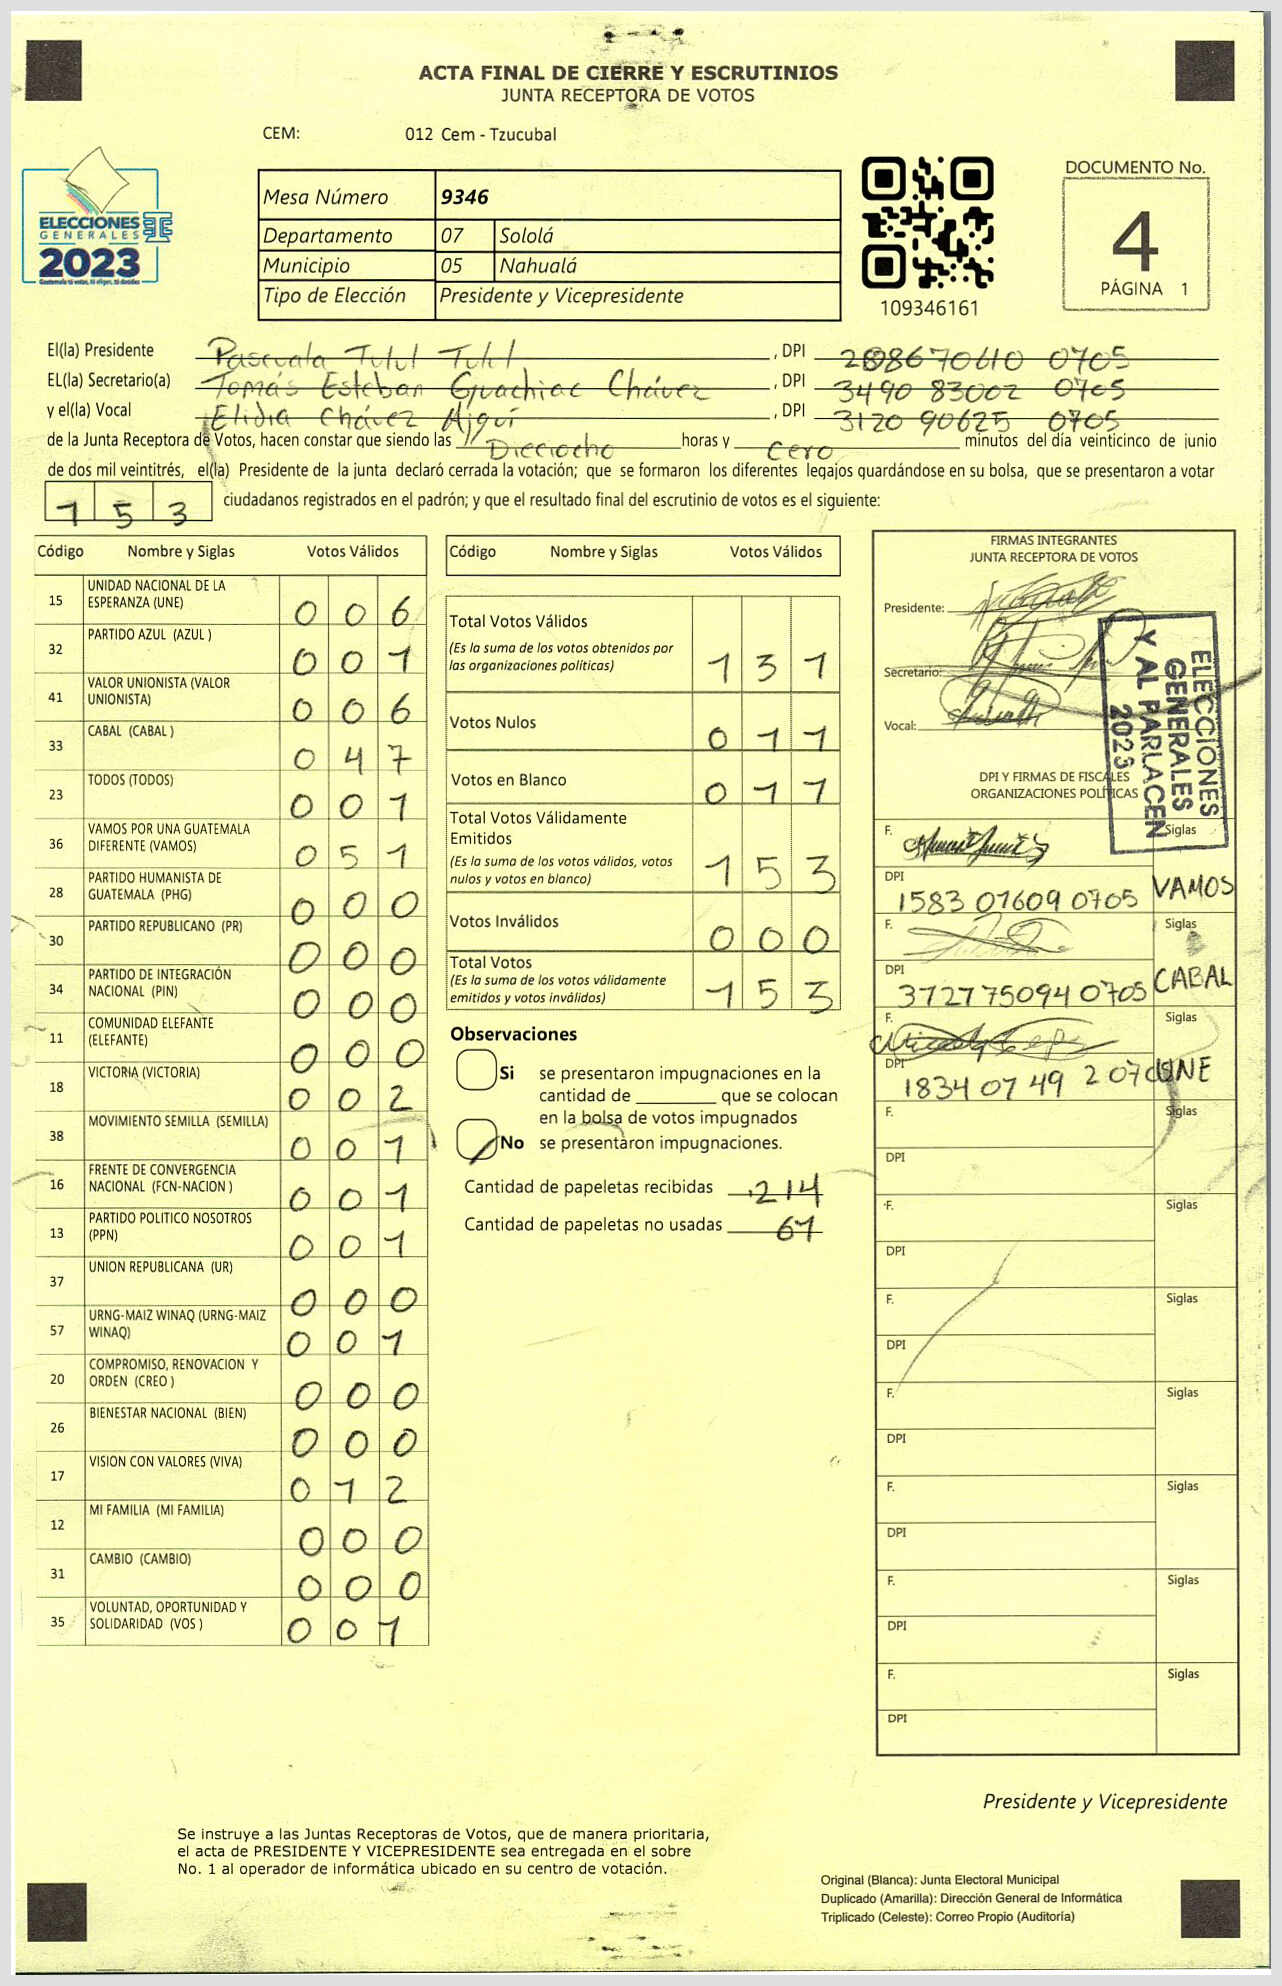 ACTA FINAL DE CIERRE Y ESCRUTINIOS
JUNTA RECEPTORA DE VOTOS
CEM: 012 Cem - Tzucubal
ELECCIONES
GENERALES
2023
Mesa Número 9346
Departamento 07 Sololá
Municipio 05 Nahualá
Tipo de Elección Presidente y Vicepresidente
109346161
DOCUMENTO No.
4
PÁGINA 1
El(la) Presidente Pascuala Tulul Tulul , DPI 208670610 0705
EL(la) Secretario(a) Tomás Esteban Guachiac Chávez , DPI 3490 83002 0705
y el(la) Vocal Elidia Chávez Ajquí , DPI 3120 90625 0705
de la Junta Receptora de Votos, hacen constar que siendo las Dieciocho horas y cero minutos del día veinticinco de junio
de dos mil veintitrés, el(la) Presidente de la junta declaró cerrada la votación; que se formaron los diferentes legajos guardándose en su bolsa, que se presentaron a votar
153 ciudadanos registrados en el padrón; y que el resultado final del escrutinio de votos es el siguiente:
Código Nombre y Siglas Votos Válidos
15 UNIDAD NACIONAL DE LA ESPERANZA (UNE) 006
32 PARTIDO AZUL (AZUL ) 001
41 VALOR UNIONISTA (VALOR UNIONISTA) 006
33 CABAL (CABAL ) 047
23 TODOS (TODOS) 001
36 VAMOS POR UNA GUATEMALA DIFERENTE (VAMOS) 051
28 PARTIDO HUMANISTA DE GUATEMALA (PHG) 000
30 PARTIDO REPUBLICANO (PR) 000
34 PARTIDO DE INTEGRACIÓN NACIONAL (PIN) 000
11 COMUNIDAD ELEFANTE (ELEFANTE) 000
18 VICTORIA (VICTORIA) 002
38 MOVIMIENTO SEMILLA (SEMILLA) 001
16 FRENTE DE CONVERGENCIA NACIONAL (FCN-NACION ) 001
13 PARTIDO POLITICO NOSOTROS (PPN) 001
37 UNION REPUBLICANA (UR) 000
57 URNG-MAIZ WINAQ (URNG-MAIZ WINAQ) 001
20 COMPROMISO, RENOVACION Y ORDEN (CREO ) 000
26 BIENESTAR NACIONAL (BIEN) 000
17 VISION CON VALORES (VIVA) 012
12 MI FAMILIA (MI FAMILIA) 000
31 CAMBIO (CAMBIO) 000
35 VOLUNTAD, OPORTUNIDAD Y SOLIDARIDAD (VOS ) 001
Código Nombre y Siglas Votos Válidos
Total Votos Válidos 131
(Es la suma de los votos obtenidos por
las organizaciones políticas)
Votos Nulos 011
Votos en Blanco 011
Total Votos Válidamente
Emitidos
(Es la suma de los votos válidos, votos
nulos y votos en blanco) 153
Votos Inválidos 000
Total Votos
(Es la suma de los votos válidamente
emitidos y votos inválidos) 153
Observaciones
Si se presentaron impugnaciones en la
cantidad de ________ que se colocan
en la bolsa de votos impugnados
No se presentaron impugnaciones.
Cantidad de papeletas recibidas 214
Cantidad de papeletas no usadas 61
FIRMAS INTEGRANTES
JUNTA RECEPTORA DE VOTOS
Presidente:
Secretario:
Vocal:
ELECCIONES
GENERALES
Y AL PARLACEN
2023
DPI Y FIRMAS DE FISCALES
ORGANIZACIONES POLÍTICAS
F. Siglas
DPI 1583 07609 0705 VAMOS
F. Siglas
DPI 372775094 0705 CABAL
F. Siglas
DPI 1834 07 49 2 070 UNE
F. Siglas
DPI
F. Siglas
DPI
F. Siglas
DPI
F. Siglas
DPI
F. Siglas
DPI
F. Siglas
DPI
F. Siglas
DPI
Presidente y Vicepresidente
Se instruye a las Juntas Receptoras de Votos, que de manera prioritaria,
el acta de PRESIDENTE Y VICEPRESIDENTE sea entregada en el sobre
No. 1 al operador de informática ubicado en su centro de votación.
Original (Blanca): Junta Electoral Municipal
Duplicado (Amarilla): Dirección General de Informática
Triplicado (Celeste): Correo Propio (Auditoría)